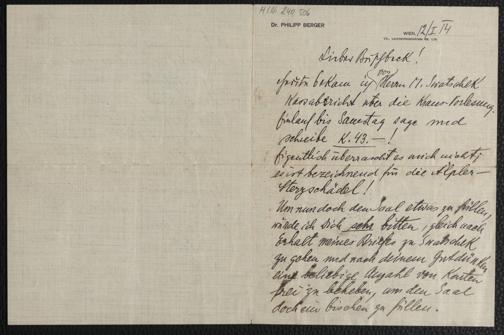 H.I.N. 240.506
Dr. PHILIPP BERGER
WIEN, 12/I 14
Lieber Buschbeck!
Heute bekam ich von Herrn M. Swatschek
Kassabericht über die Kraus-Vorlesung.
Einlauf bis Samstag sage und
schreibe K. 43.— !
Eigentlich überrascht es mich nicht;
es ist bezeichnend für die Älpler-
Sterzschädel!
Um nun doch den Saal etwas zu füllen,
würde ich Dich sehr bitten, gleich nach
Erhalt meines Briefes zu Swatschek
zu gehen und nach deinem Gutdünken
eine beliebige Anzahl von Karten
frei zu beheben, um den Saal
doch ein bischen zu füllen.